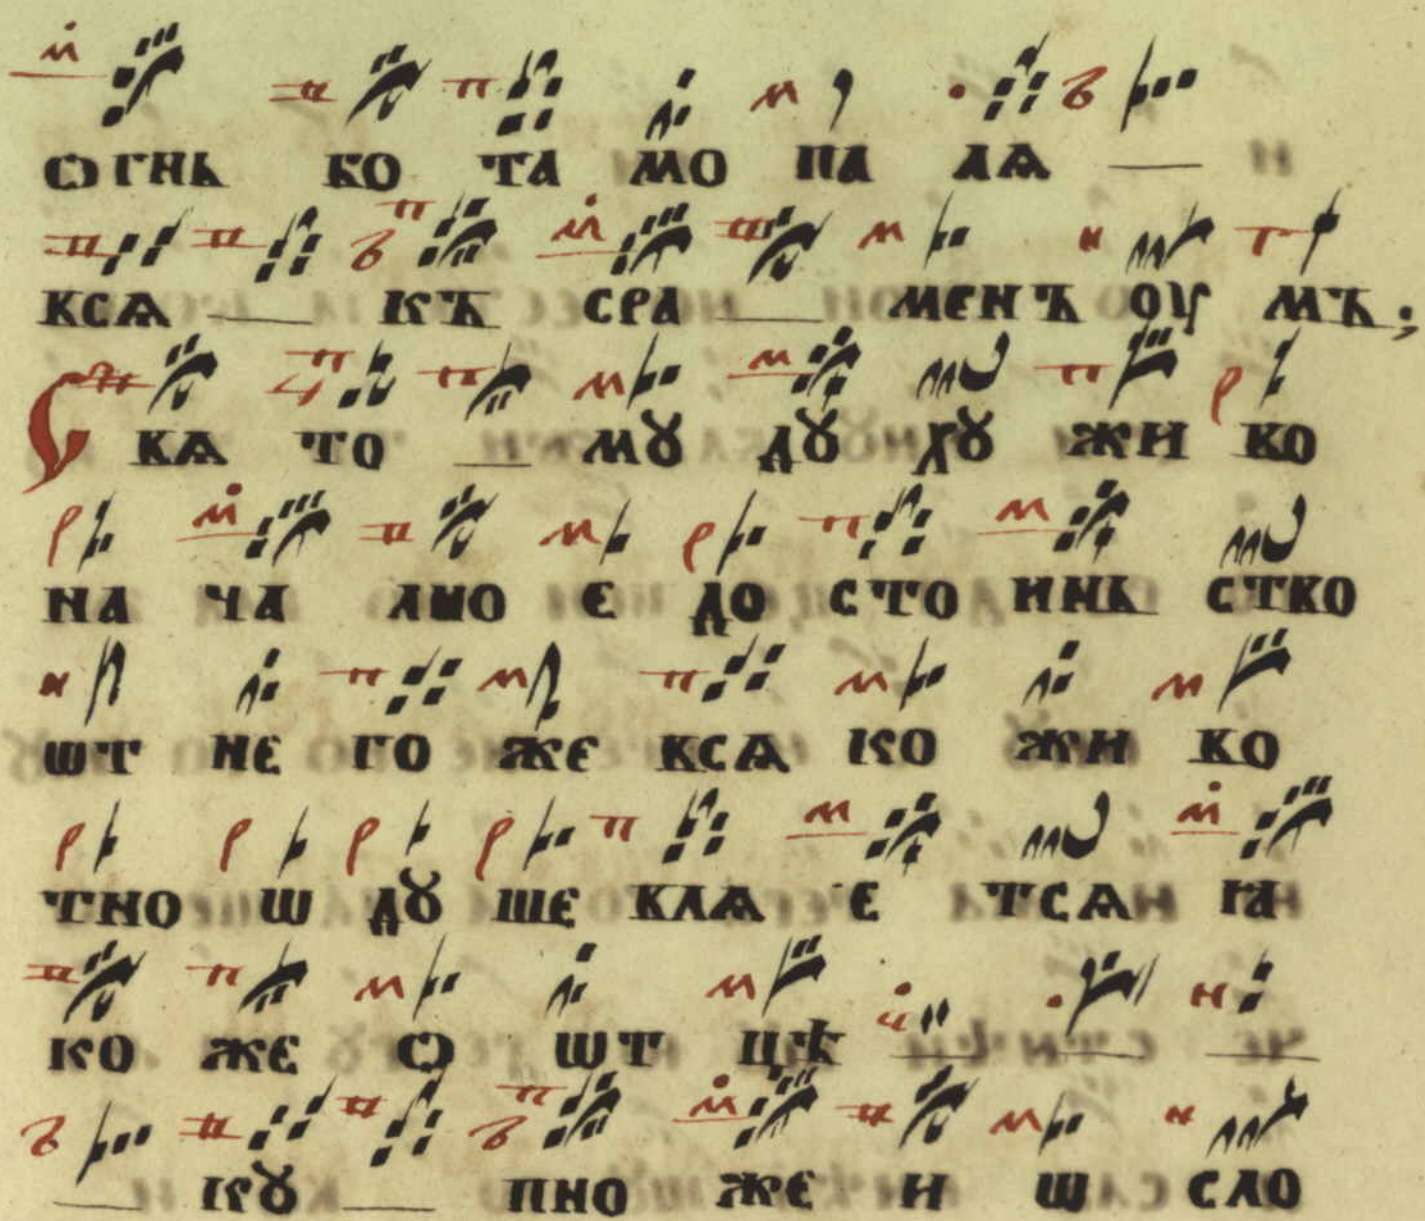 ѻгнь бо та мо па лѧ —
всѧ — къ сра — менъ оу мъ;
С вѧ то — мꙋ дꙋ хꙋ жи во
на ча лно е до сто инь ство
ѡт не го же всѧ ко жи во
тно ѡ дꙋ ше влѧ е тсѧ ꙗ
ко же ѻ ѡт цѣ — — —
— кꙋ — пно же и ѡ сло